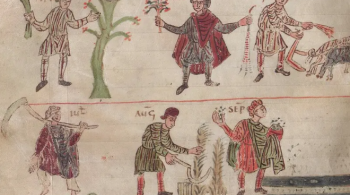 IUL
AUG
SEP